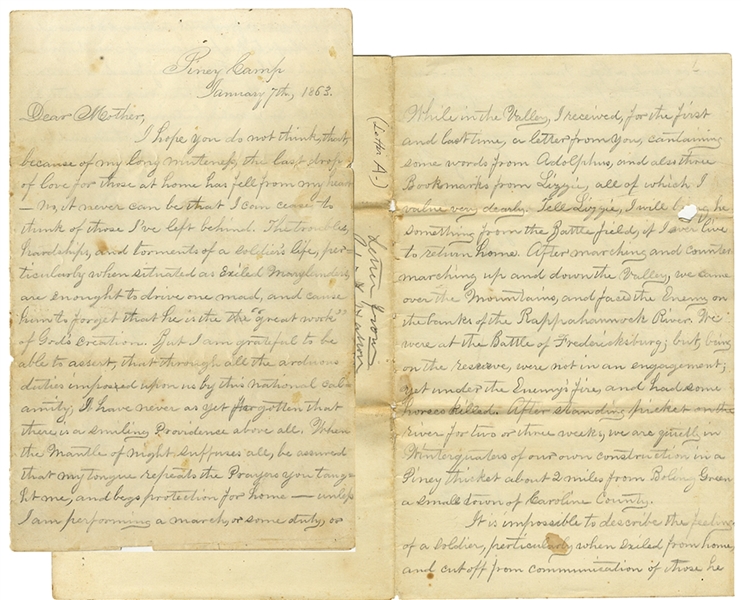 Piney Camp
January 7th, 1863.
Dear Mother,
I hope you do not think, that
because of my long muteness, the last drop
of love for those at home has fell from my heart
— no, it never can be that I can cease to
think of those I've left behind. The troubles,
hardships, and torments of a soldier's life, par-
ticularly when situated as Exiled Marylanders
are enought to drive one mad, and cause
him to forget that he is the the "great work"
of God's creation. But I am grateful to be
able to assert, that through all the arduous
duties imposed upon us by this national cal-
amity, I have never as yet forgotten that
there is a smiling Providence above all. When
the Mantle of night suffuses all, be assured
that my tongue repeats the Prayers you taug-
ht me, and begs protection for home — unless
I am performing a march, or some duty, or
(Letter A.)
Letter from
While in the Valley, I received, for the first
and last time, a letter from you, containing
some words from Adolphus, and also three
Bookmarks from Lizzie, all of which I
value very dearly. Tell Lizzie, I will bring her
something from the Battle field, if I ever live
to return home. After marching and counter
marching up and down the Valley, we came
over the Mountains, and faced the Enemy on
the banks of the Rappahannock River. We
were at the Battle of Fredericksburg; but, being
on the reserve, were not in an engagement;
yet under the Enemy's fire, and had some
horses killed. After standing picket on the
river for two or three weeks, we are quietly in
Winterquaters of our own construction in a
Piney thicket about 2 miles from Boling Green
a small town of Caroline County.
It is impossible to describe the feelings
of a soldier, particularly when Exiled from home,
and cut off from communication of those he